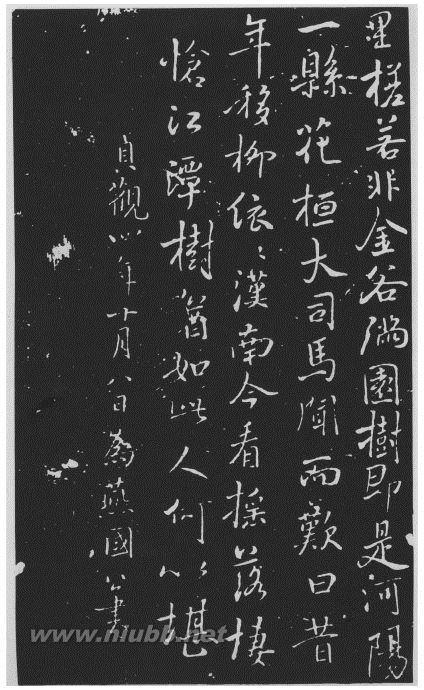 里槎若非金谷滿園樹即是河陽
一縣花桓大司馬聞而歎曰昔
年移柳依〻漢南今看搖落悽
愴江潭樹猶如此人何以堪
貞觀四年十月八日為燕國公書
www.niubb.net